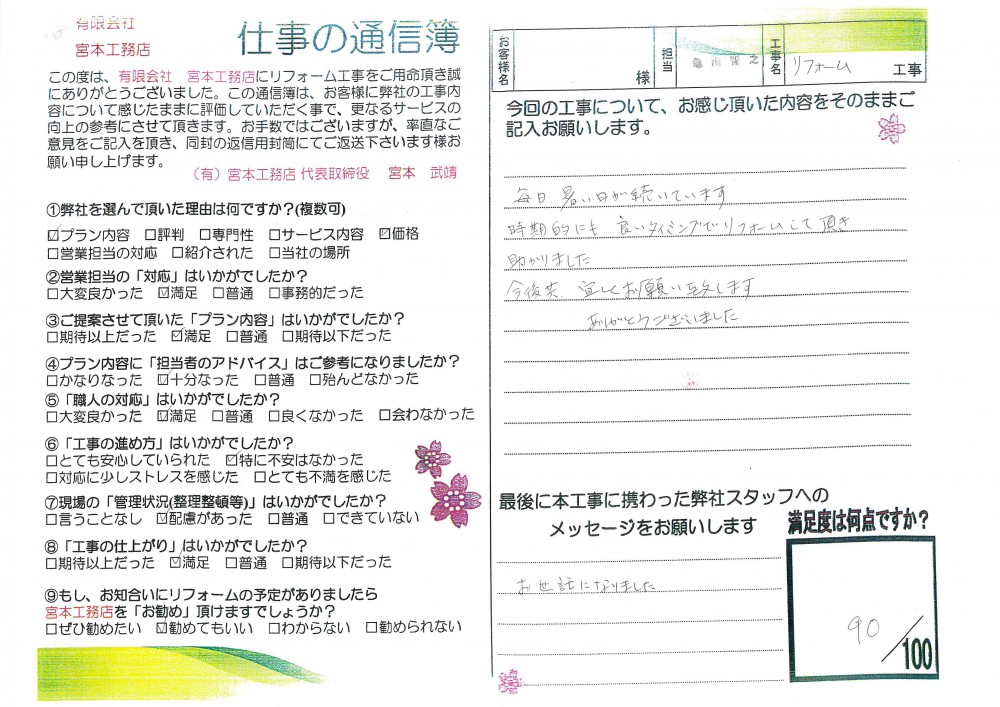 有限会社
宮本工務店
仕事の通信簿
この度は、有限会社　宮本工務店にリフォーム工事をご用命頂き誠
にありがとうございました。この通信簿は、お客様に弊社の工事内
容について感じたままに評価していただく事で、更なるサービスの
向上の参考にさせて頂きます。お手数ではございますが、率直なご
意見をご記入を頂き、同封の返信用封筒にてご返送下さいます様お
願い申し上げます。
（有）宮本工務店 代表取締役　宮本　武靖
①弊社を選んで頂いた理由は何ですか？(複数可)
☑プラン内容　□評判　□専門性　□サービス内容　☑価格
□営業担当の対応　□紹介された　□当社の場所
②営業担当の「対応」はいかがでしたか？
□大変良かった　☑満足　□普通　□事務的だった
③ご提案させて頂いた「プラン内容」はいかがでしたか？
□期待以上だった　☑満足　□普通　□期待以下だった
④プラン内容に「担当者のアドバイス」はご参考になりましたか？
□かなりなった　☑十分なった　□普通　□殆んどなかった
⑤「職人の対応」はいかがでしたか？
□大変良かった　☑満足　□普通　□良くなかった　□会わなかった
⑥「工事の進め方」はいかがでしたか？
□とても安心していられた　☑特に不安はなかった
□対応に少しストレスを感じた　□とても不満を感じた
⑦現場の「管理状況(整理整頓等)」はいかがでしたか？
□言うことなし　☑配慮があった　□普通　□できていない
⑧「工事の仕上がり」はいかがでしたか？
□期待以上だった　☑満足　□普通　□期待以下だった
⑨もし、お知合いにリフォームの予定がありましたら
宮本工務店を「お勧め」頂けますでしょうか？
□ぜひ勧めたい　☑勧めてもいい　□わからない　□勧められない
お客様名
様
担当
工事名
リフォーム
工事
今回の工事について、お感じ頂いた内容をそのままご
記入お願いします。
毎日 暑い日が続いています
時期的にも 良いタイミングでリフォームして頂き
助かりました
今後共 宜しくお願い致します
ありがとうございました
最後に本工事に携わった弊社スタッフへの
メッセージをお願いします
お世話になりました
満足度は何点ですか？
90
／100